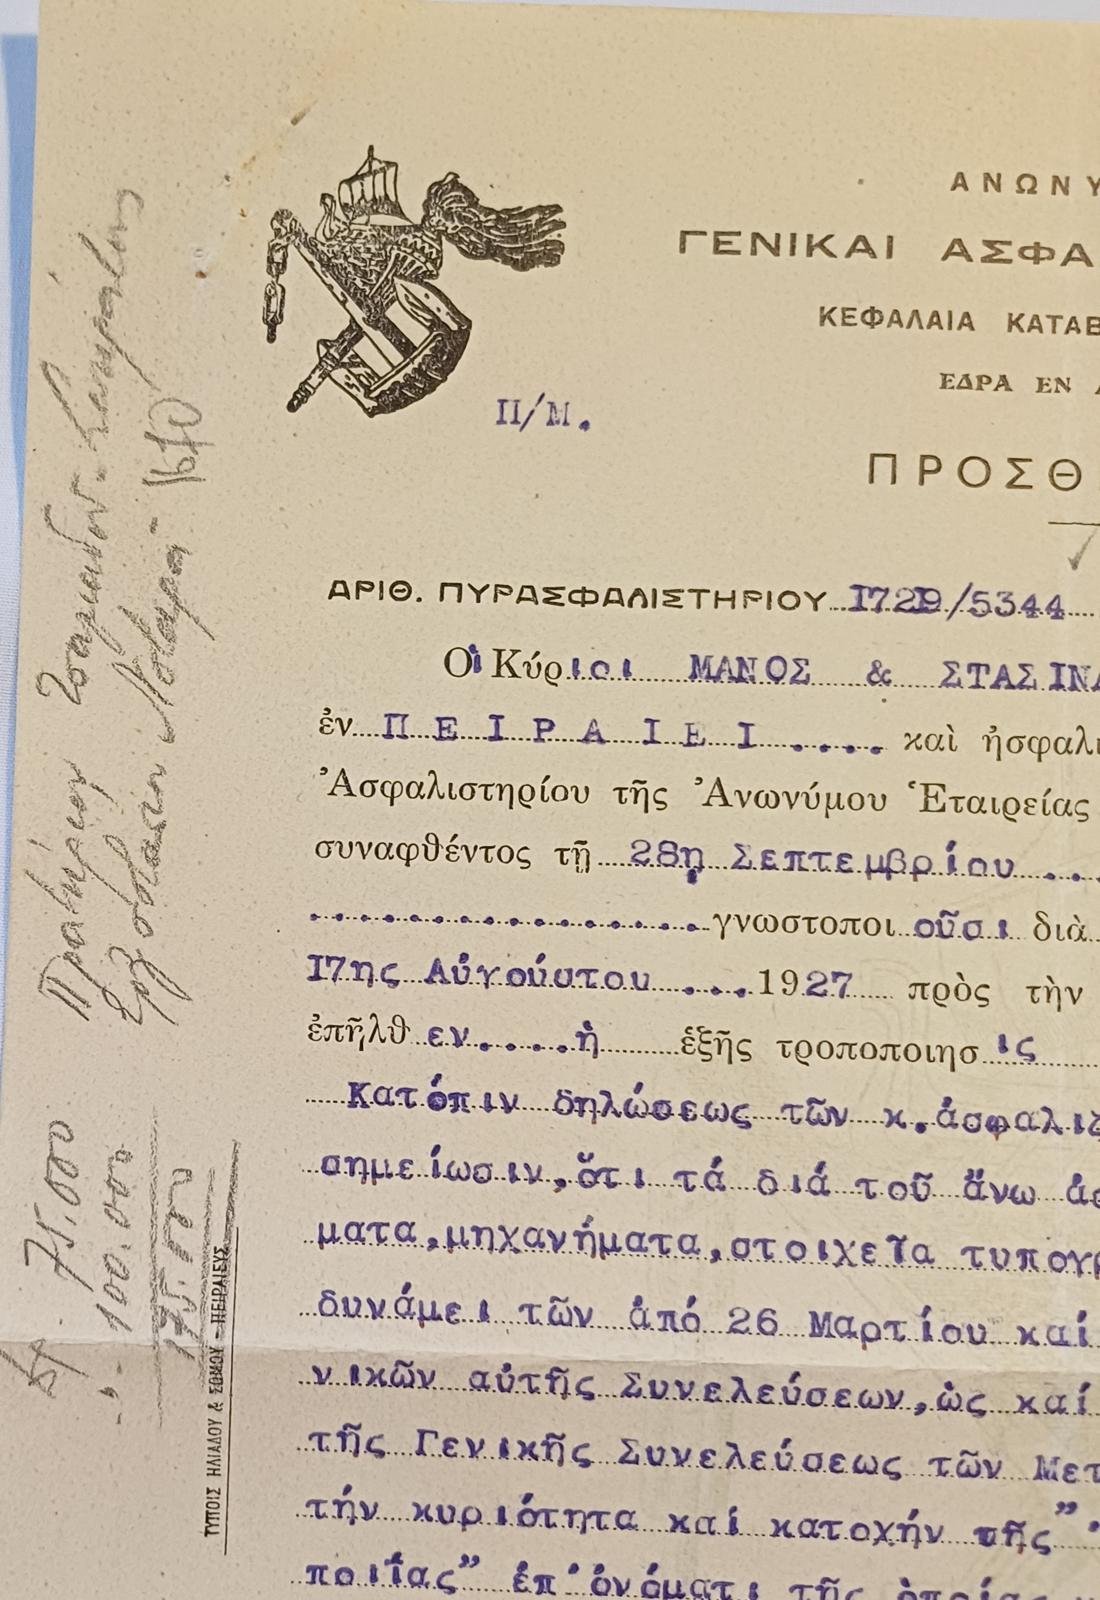 ΑΝΩΝΥ
ΓΕΝΙΚΑΙ ΑΣΦΑ
ΚΕΦΑΛΑΙΑ ΚΑΤΑΒ
ΕΔΡΑ ΕΝ Α
Π/Μ.
ΠΡΟΣΘ
ΑΡΙΘ. ΠΥΡΑΣΦΑΛΙΣΤΗΡΙΟΥ 1729/5344
Οἱ Κύριοι ΜΑΝΟΣ & ΣΤΑΣΙΝΑ
ἐν ΠΕΙΡΑΙΕΙ .... καὶ ἠσφαλι
Ἀσφαλιστηρίου τῆς Ἀνωνύμου Ἑταιρείας
συναφθέντος τῇ 28η Σεπτεμβρίου ....
γνωστοποιοῦσι διὰ
17ης Αὐγούστου ....1927 πρὸς τὴν
ἐπῆλθεν.....ἡ ἑξῆς τροποποιησις
Κατόπιν δηλώσεως τῶν κ.ἀσφαλιζ
σημείωσιν,ὅτι τά διά τοῦ ἄνω ἀσ
ματα,μηχανήματα,στοιχεῖα τυπογρ
δυνάμει τῶν ἀπό 26 Μαρτίου καί
νικῶν αὐτῆς Συνελεύσεων,ὡς καί
τῆς Γενικῆς Συνελεύσεως τῶν Μετ
τήν κυριότητα καί κατοχήν τῆς"
ποιΐας" ἐπ'ὀνόματι τῆς ὁποίας
75.000
100.000
175.000
ΤΥΠΟΙΣ ΗΛΙΑΔΟΥ & ΣΩΜΟΥ - ΠΕΙΡΑΙΕΥΣ